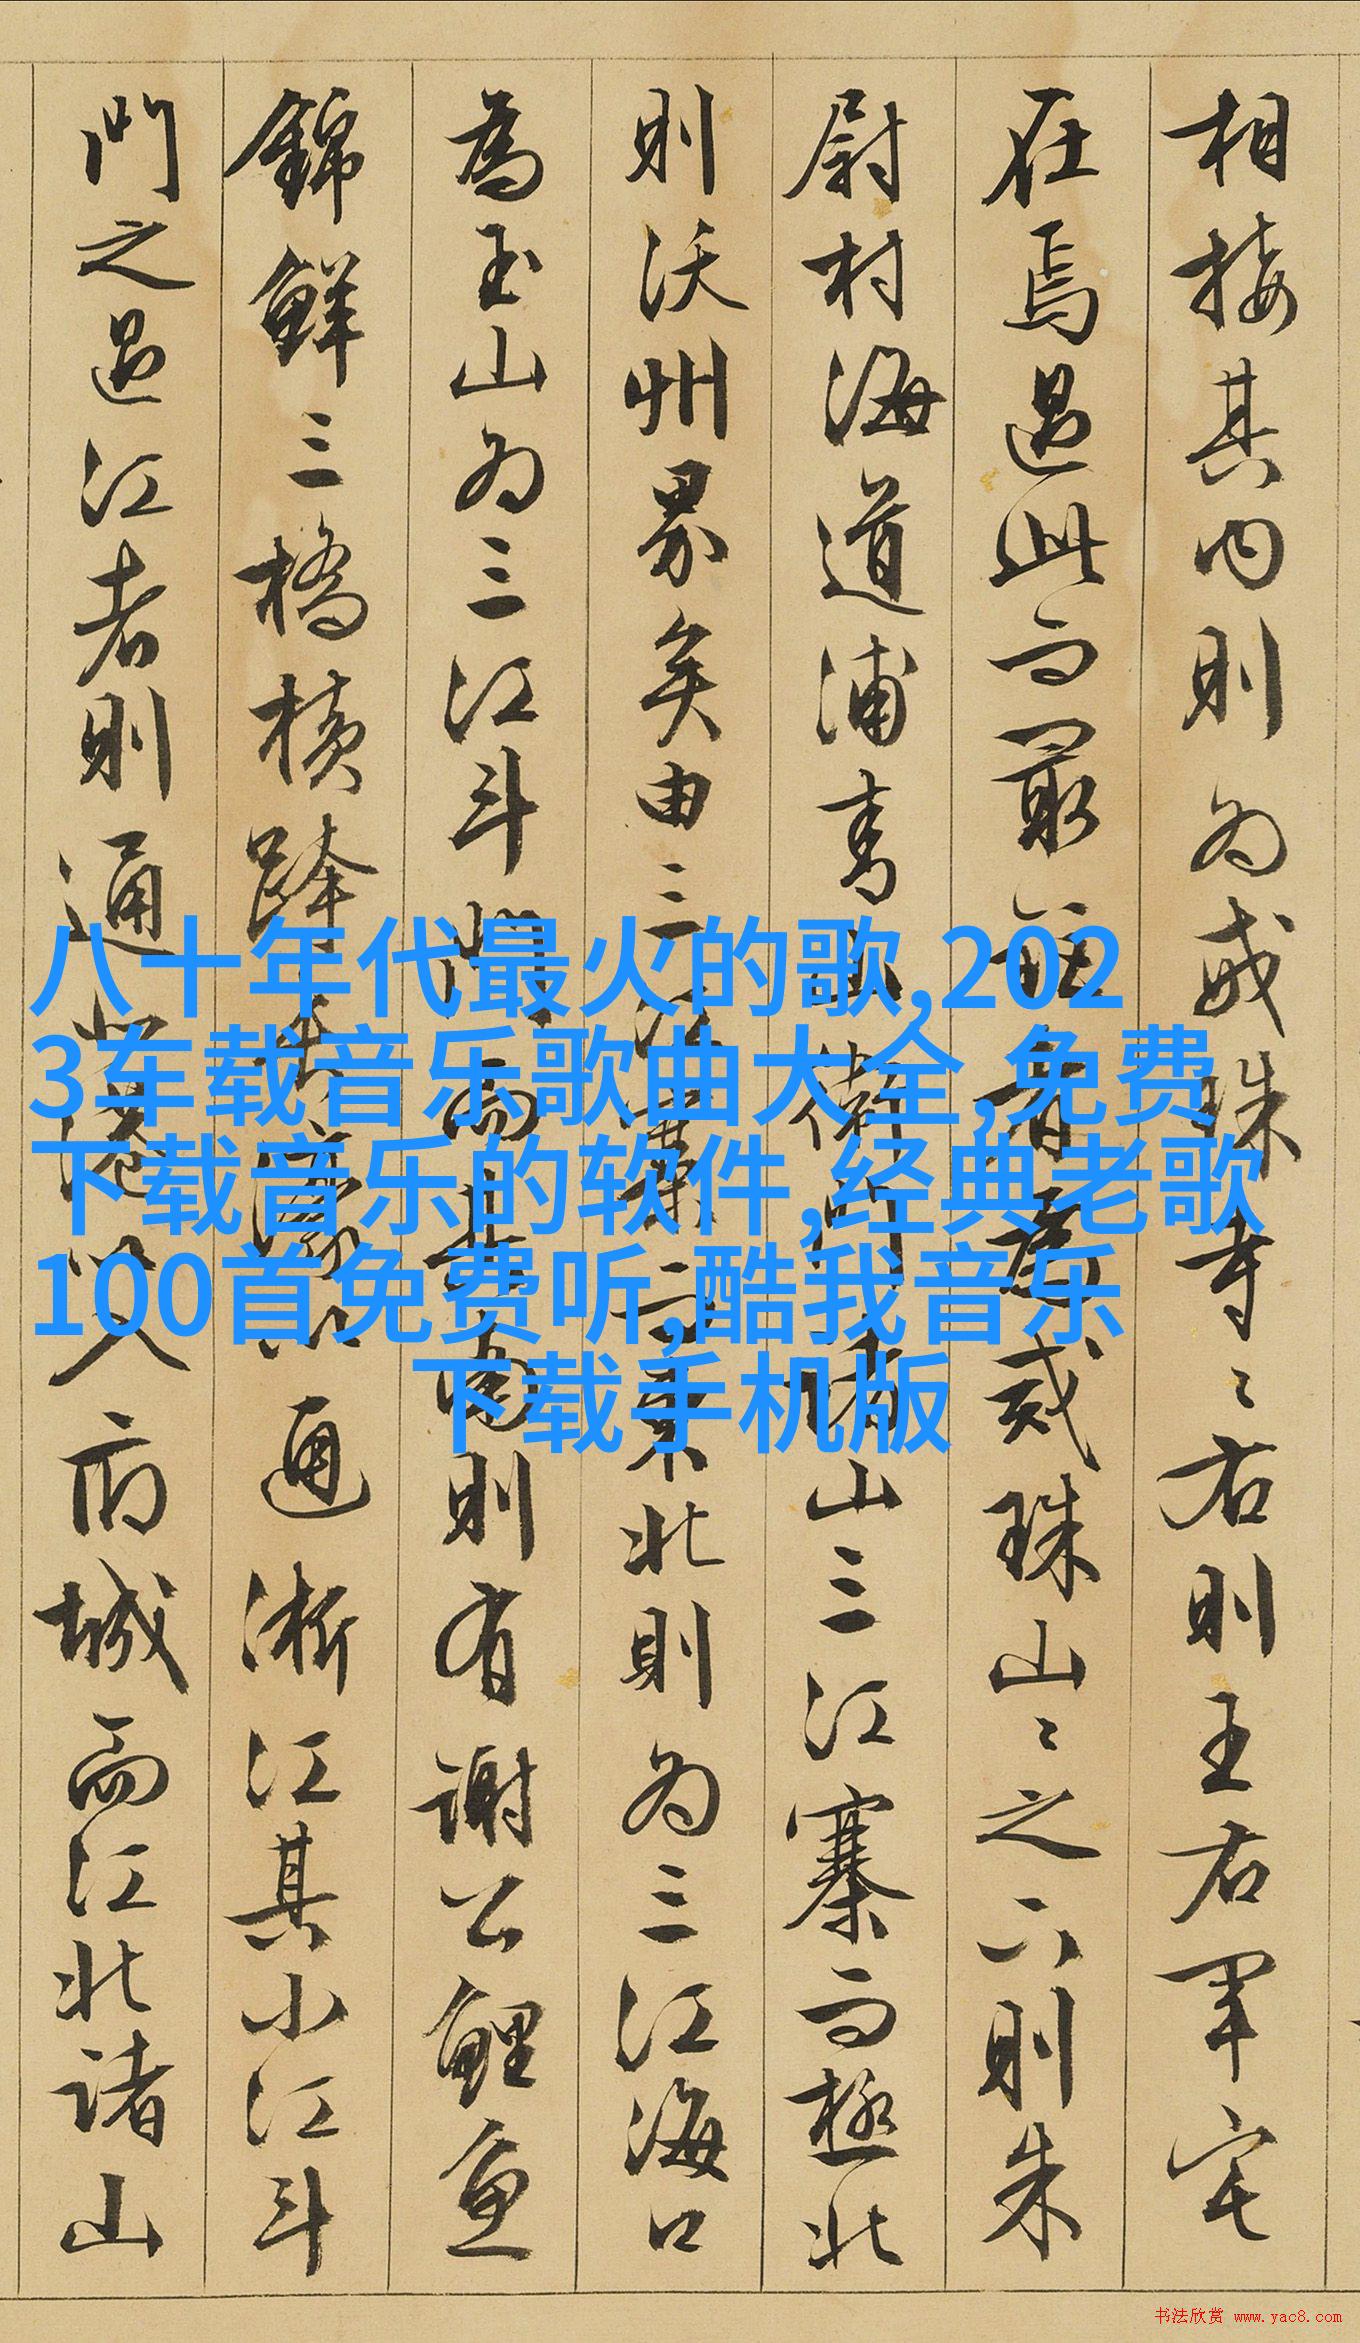 相接其内則為戒珠寺〻右則王右軍宅
在焉過此而最
者為戒珠山〻之六則朱
尉村海道浦
山三江寨而極北
則沃州界矣由三江
東北則為三江海口
為玉山為三江斗門
則有謝公鯉魚
錦鮮三橋橫跨
通淅江其小江斗
門之過江者則通
以入府城而江北諸山
八十年代最火的歌,202
3车载音乐歌曲大全,免费
下载音乐的软件,经典老歌
100首免费听,酷我音乐
下载手机版
书法欣赏 www.yac8.com